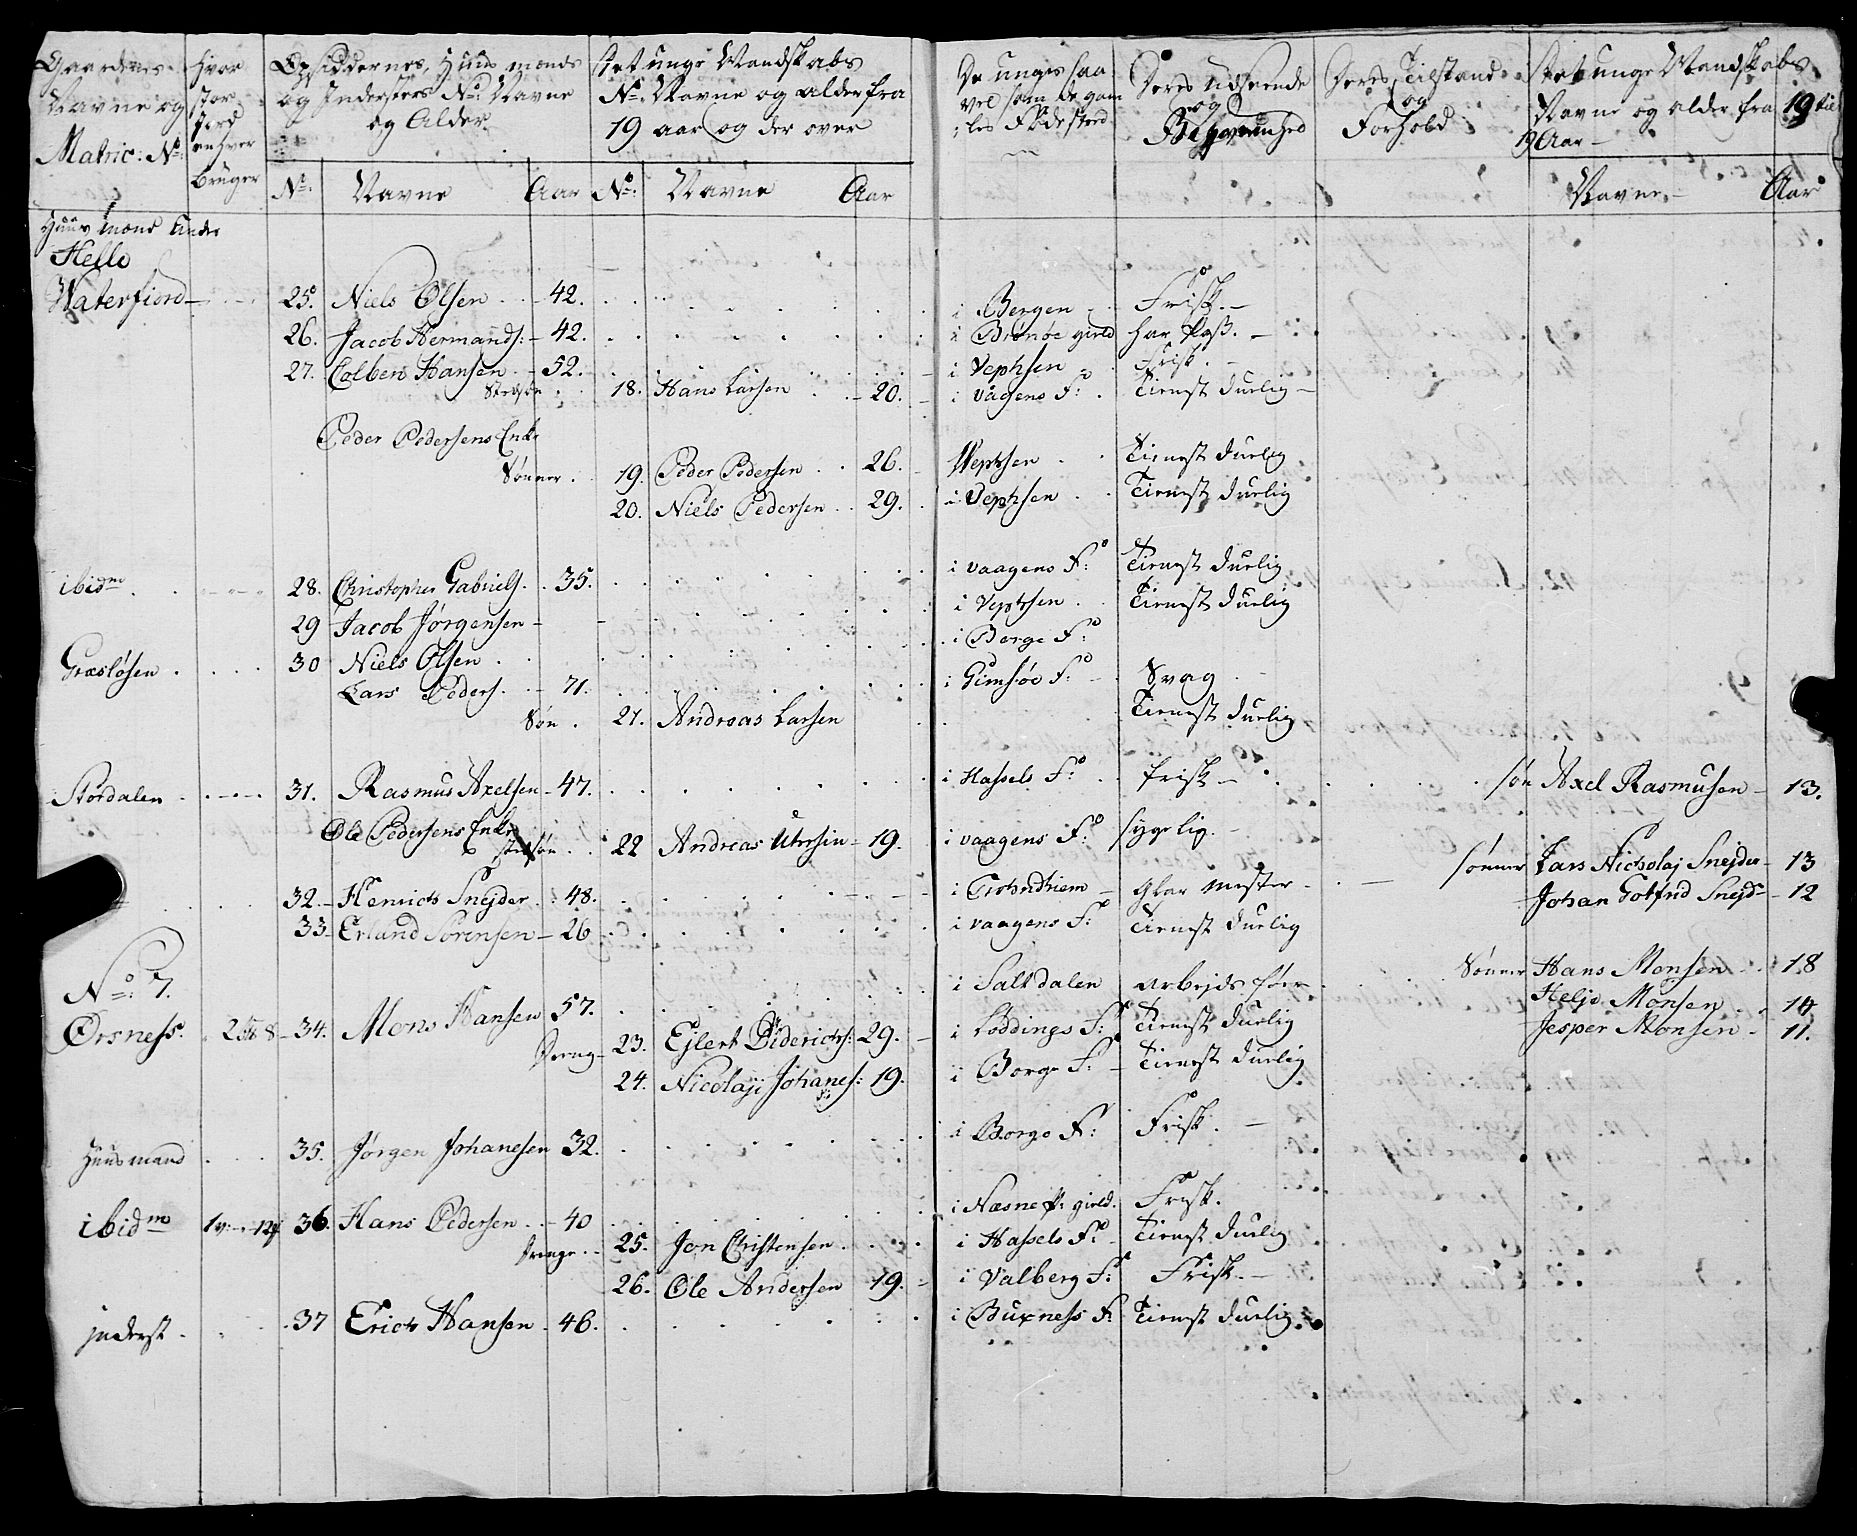 Gaardenes Navne og Matric: No:
hvor stor Jord en hver bruger
Opsiddernes, Huusmænds og Indersters No: Navne og Alder
Det unge Mandskabs No: Navne og alder fra 19 aar og der over
De unges saa vel som de gamles Fødested
Deres Udseende og
Deres Tilstand og Forhold
Det unge Mandskabs Navne og alder fra 19 til Aar
No: Navne Aar No: Navne Aar Navne Aar
Huusmænd under
Helle
Waterfiord 25. Niels Olsen 42. i Bergen Frisk.
26. Jacob Hermands: 42. i Brønøe gield har Pass.
27. Colben Hansen 52. i Vephsen frisk.
Stedsøn 18. Hans Larsen 20. i Vaagens F: Tienst duelig
Peder Pedersens Enke
Sønner 19. Peder Pedersen 26. Wephsen Tienst duelig
20. Niels Pedersen 29. i Vephsen Tienst duelig
ibidm 28. Christopher Gabriels. 35. i vaagens F: Tienst duelig
29 Jacob Jørgensen i Vephsen Tienst duelig
Græsløsen 30 Niels Olsen i Borge F:
Lars Peders. 71. i Gimsøe F: Svag
Søn 21. Andreas Larsen Tienst duelig
Stordalen 31. Rasmus Axelsen 47. i Hassels F: frisk søn Axel Rasmusen 13.
Ole Pedersens Enke
stedsøn 22 Andreas 19. i vaagens F: sygelig.
32. Henrich Snejder 48. i Trohndhiem Glar mester sønner Lars Nicholaj Snejder 13
Johan Gotfrid Snejd 12
33 Erland Sørensen 26 i vaagens F: Tienst duelig
No: 7.
Ørsness. 2 8 34. Mons Hansen 57. i Saltdalen arbejds før Sønner Hans Monsen 18
Helje Monsen 14.
Jesper Monsen 11.
Dreng 23. Ejlert Diderichs: 29. i Loddings F: Tienst duelig
24. Nicolaji Johanes: 19. i Borge F: Tienst duelig
Huusmand 35. Jørgen Johanesen 32. i Borge F: Frisk.
ibidm 1 36. Hans Pedersen 40 i Næsne P: gield. Frisk.
Drenge 25. Jon Christensen i Hassels F: Tienst duelig
26. Ole Andersen 19. i Valberg F: Frisk.
jnderst 37 Erich Hansen 46. i Buxness F: Tienst duelig